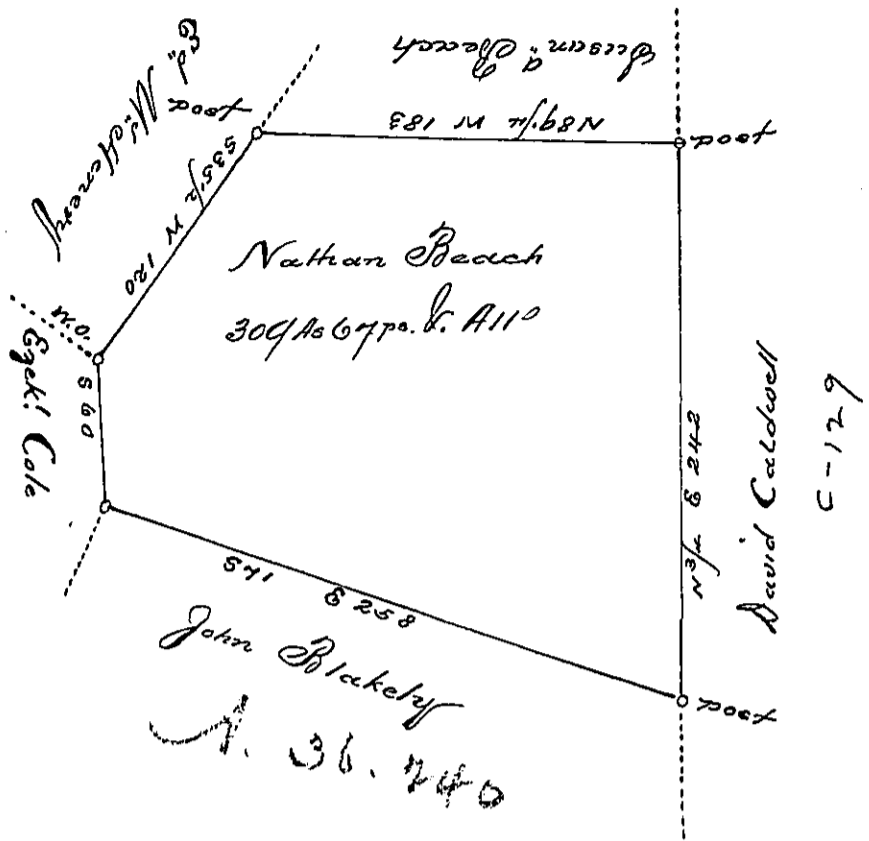 Susan A Beach
N89 1/4 W 183
post
Ed. McHenry
post
S35 1/2 W 120
W.O.
Ezek! Cole
S 60
Nathan Beach
309As 67ps. &. All°
N 3/4 E 242
David Caldwell
C-129
S71 E 258
John Blakely
post
A. 36. 240